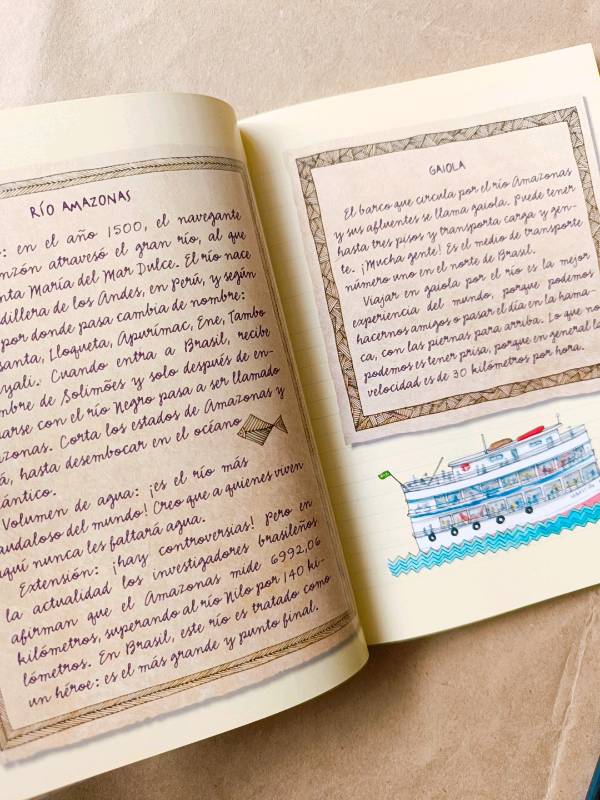 RÍO AMAZONAS
: en el año 1500, el navegante
nzón atravesó el gran río, al que
nta María del Mar Dulce. El río nace
dillera de los Andes, en Perú, y según
por donde pasa cambia de nombre:
santa, Lloqueta, Apurímac, Ene, Tambo
yali. Cuando entra a Brasil, recibe
mbre de Solimões y solo después de en-
arse con el río Negro pasa a ser llamado
zonas. Corta los estados de Amazonas y
á, hasta desembocar en el océano
ántico.
Volumen de agua: ¡es el río más
audaloso del mundo! Creo que a quienes viven
aquí nunca les faltará agua.
Extensión: ¡hay controversias! Pero en
la actualidad los investigadores brasileños
afirman que el Amazonas mide 6992,06
kilómetros, superando al río Nilo por 140 ki-
lómetros. En Brasil, este río es tratado como
un héroe: es el más grande y punto final.
GAIOLA
El barco que circula por el río Amazonas
y sus afluentes se llama gaiola. Puede tener
hasta tres pisos y transporta carga y gen-
te. ¡Mucha gente! Es el medio de transporte
número uno en el norte de Brasil.
Viajar en gaiola por el río es la mejor
experiencia del mundo, porque podemos
hacernos amigos o pasar el día en la hama-
ca, con las piernas para arriba. Lo que no
podemos es tener prisa, porque en general la
velocidad es de 30 kilómetros por hora.